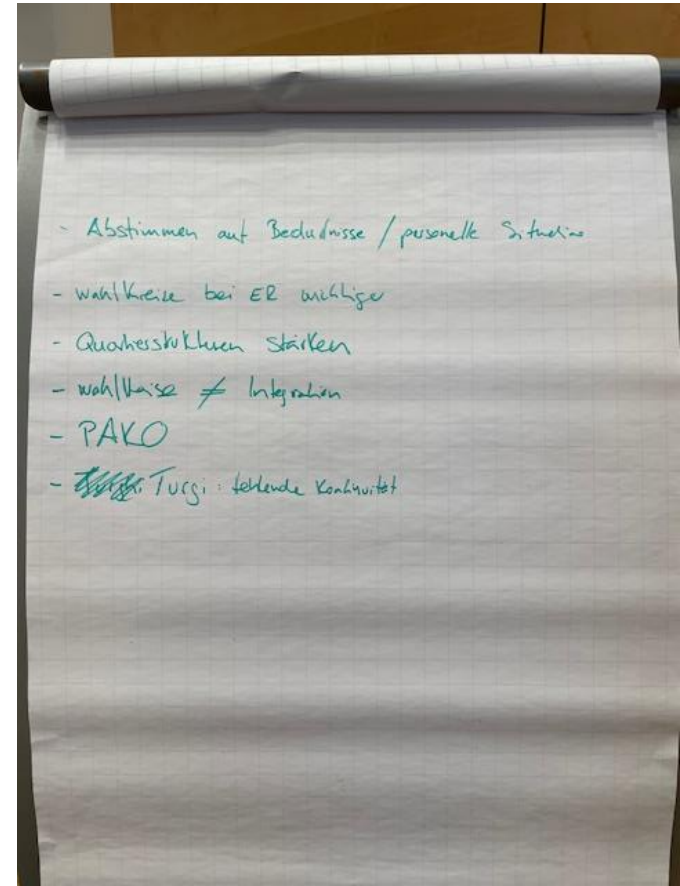 - Abstimmen auf Bedürfnisse / personelle Situation
- Wahlkreise bei ER wichtiger
- Quartierstrukturen stärken
- Wahlkreise ≠ Integration
- PAKO
- Turgi: fehlende Kontinuität